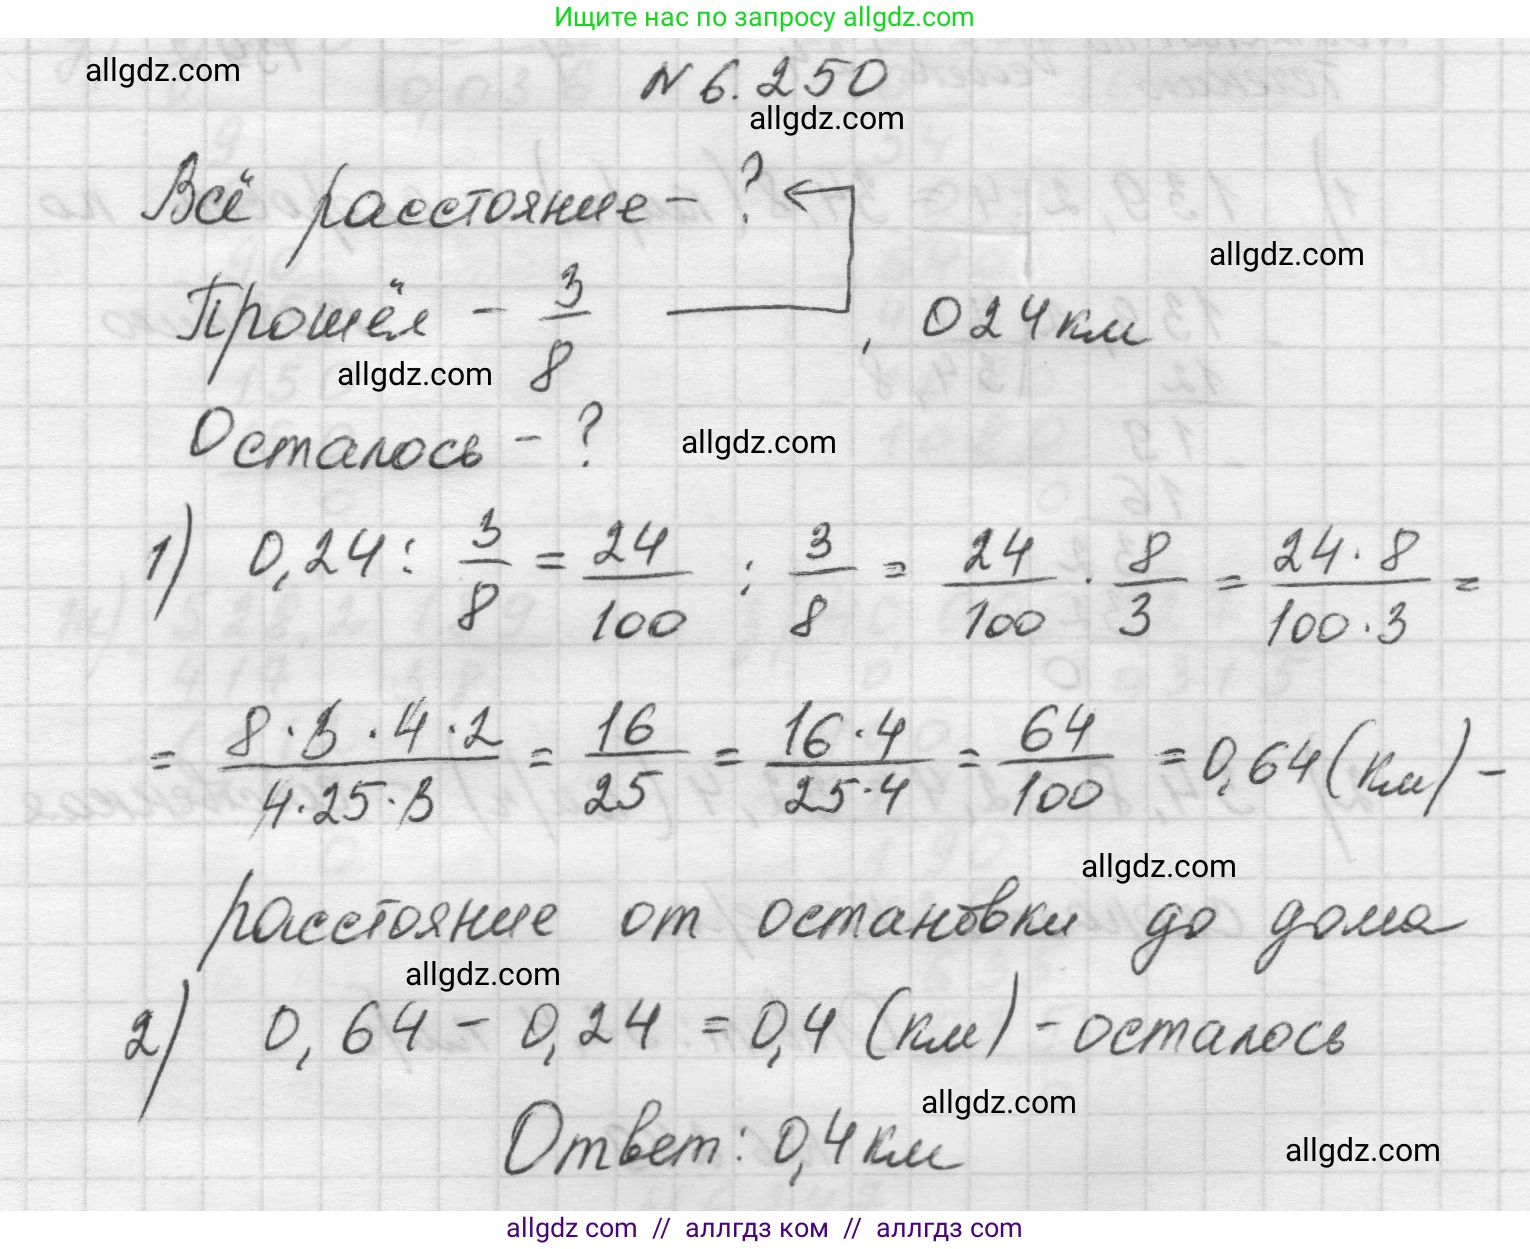 Ищите нас по запросу allgdz.com
allgdz.com
N 6.250
allgdz.com
Всё расстояние - ?
allgdz.com
Прошёл - 3/8 , 024 км
allgdz.com
Осталось - ?
allgdz.com
1) 0,24 : 3/8 = 24/100 : 3/8 = 24/100 · 8/3 = 24·8/100·3 =
= 8·3·4·2/4·25·3 = 16/25 = 16·4/25·4 = 64/100 = 0,64 (км) -
allgdz.com
расстояние от остановки до дома
allgdz.com
2) 0,64 - 0,24 = 0,4 (км) - осталось
allgdz.com
Ответ: 0,4 км
allgdz.com
allgdz.com // аллгдз ком // аллгдз com